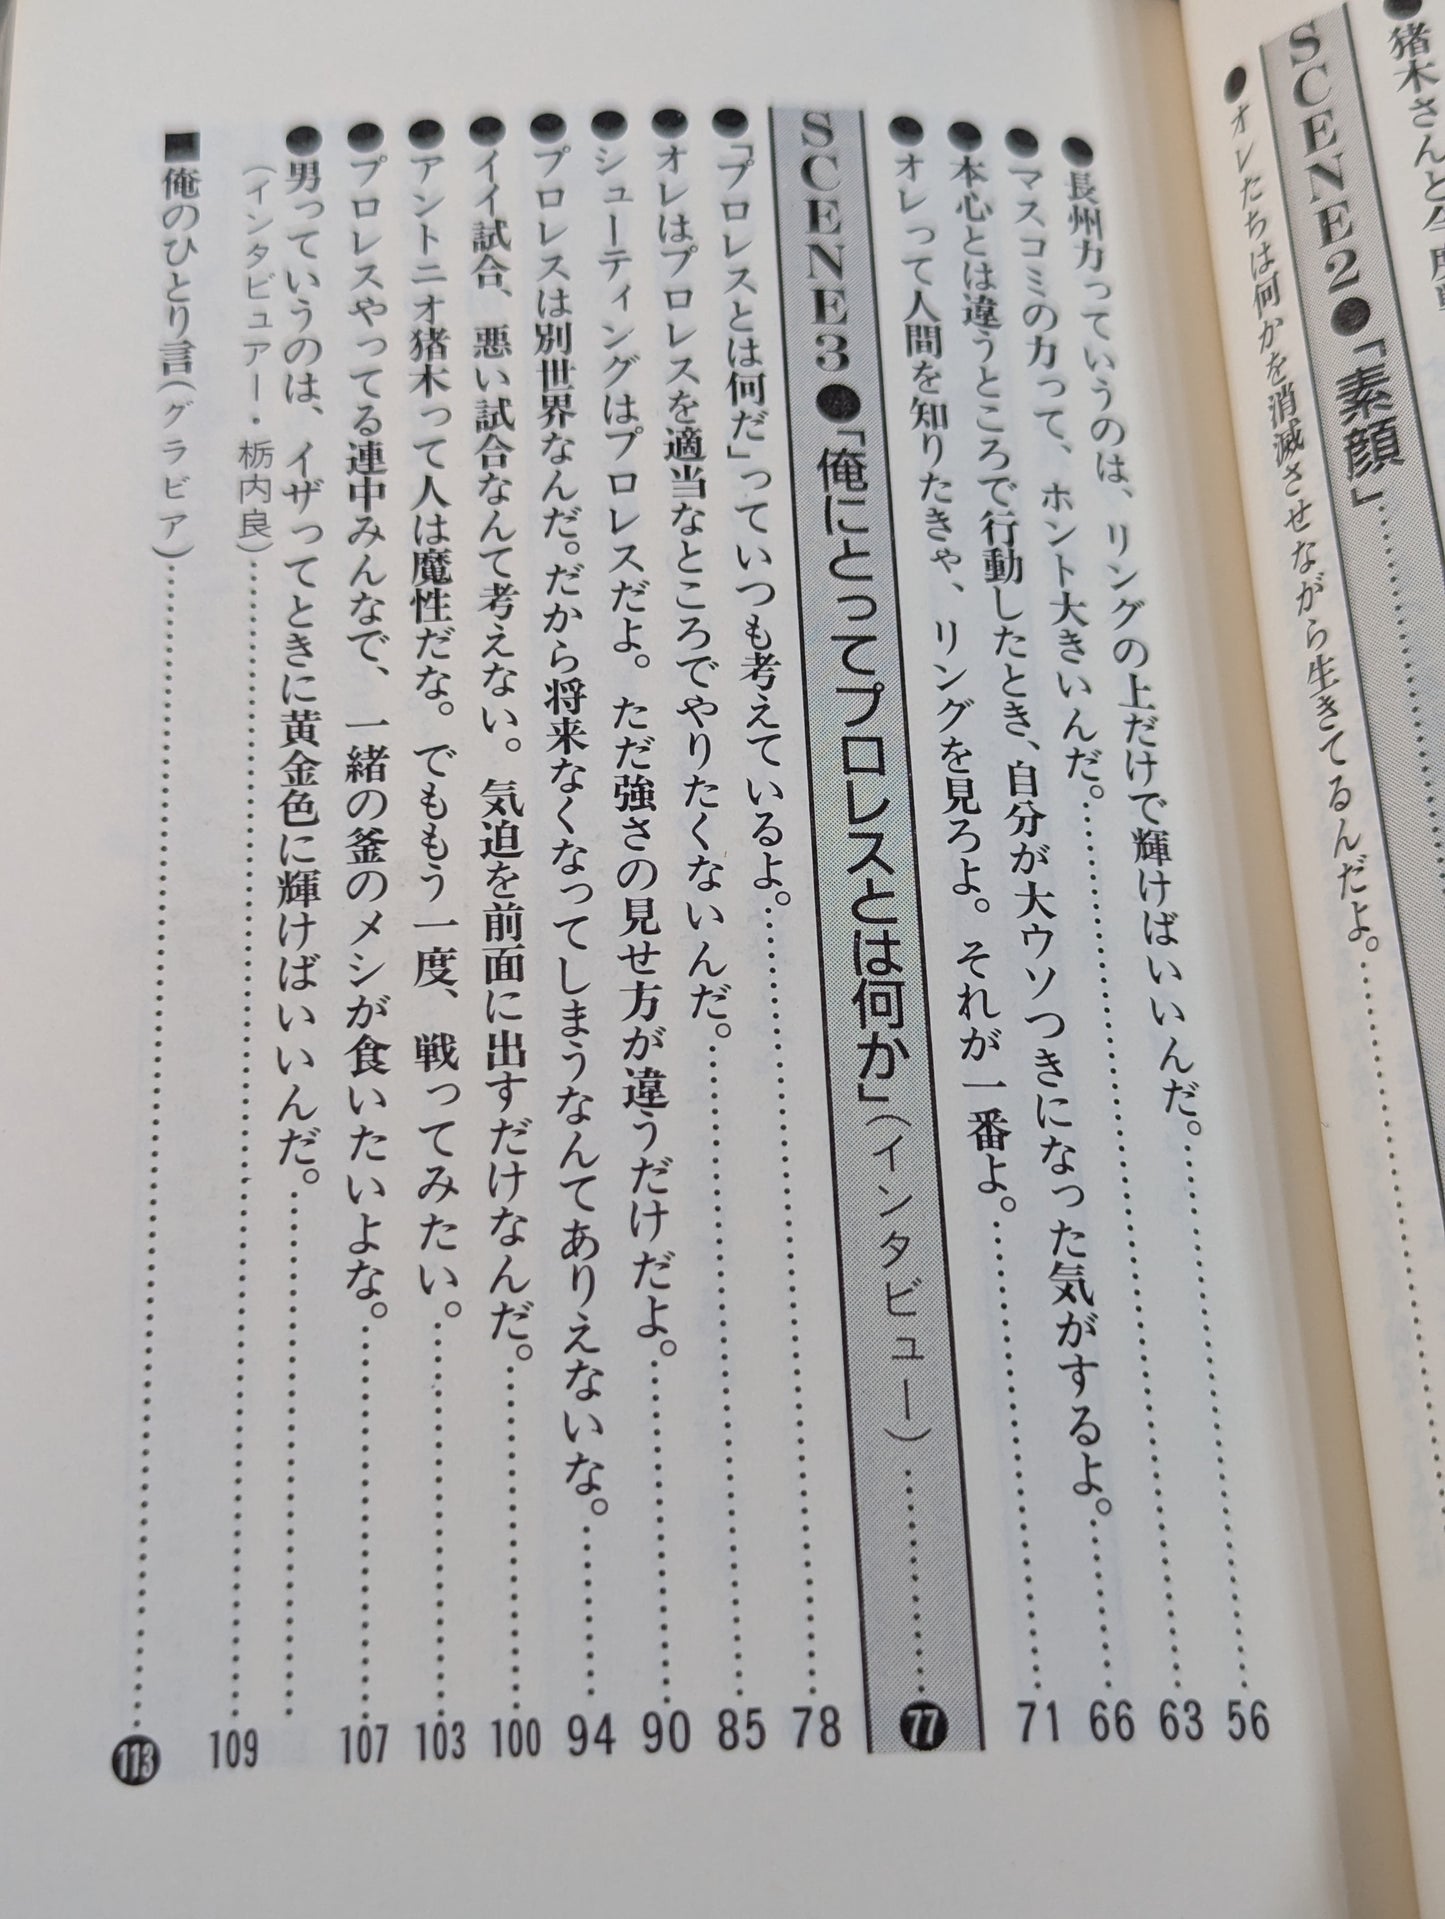 猪木さんと
SCENE2●「素顔」
●オレたちは何かを消滅させながら生きてるんだよ。
●長州力っていうのは、リングの上だけで輝けばいいんだ。 56
●マスコミの力って、ホント大きいんだ。 63
●本心とは違うところで行動したとき、自分が大ウソつきになった気がするよ。 66
●オレって人間を知りたきゃ、リングを見ろよ。それが一番よ。 71
SCENE3●「俺にとってプロレスとは何か」(インタビュー) 77
●「プロレスとは何だ」っていつも考えているよ。 78
●オレはプロレスを適当なところでやりたくないんだ。 85
●シューティングはプロレスだよ。ただ強さの見せ方が違うだけだよ。 90
●プロレスは別世界なんだ。だから将来なくなってしまうなんてありえないな。 94
●イイ試合、悪い試合なんて考えない。気迫を前面に出すだけなんだ。 100
●アントニオ猪木って人は魔性だな。でももう一度、戦ってみたい。 103
●プロレスやってる連中みんなで、一緒の釜のメシが食いたいよな。 107
●男っていうのは、イザってときに黄金色に輝けばいいんだ。
(インタビュアー・栃内良) 109
■俺のひとり言(グラビア) 113